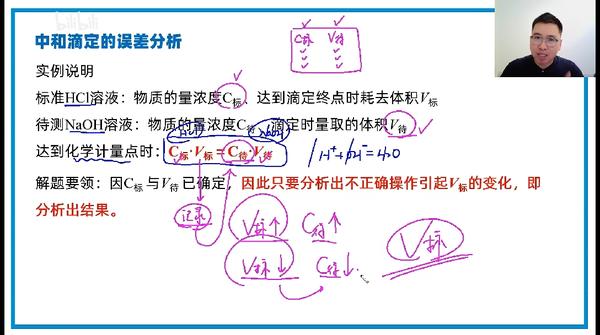 bilibili
中和滴定的误差分析
C标 V待
实例说明
标准HCl溶液：物质的量浓度C标、达到滴定终点时耗去体积V标
待测NaOH溶液：物质的量浓度C待、滴定时量取的体积V待
HCl NaOH
达到化学计量点时：C标·V标=C待·V待
H⁺+OH⁻=H₂O
解题要领：因C标与V待已确定，因此只要分析出不正确操作引起V标的变化，即
分析出结果。
记录
V标↑ C待↑
V标
V标↓ C待↓